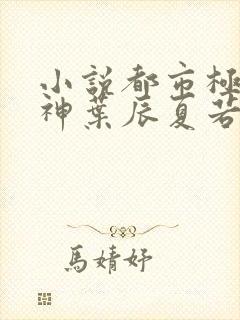 小說都市極
神葉辰夏若
馬婧妤